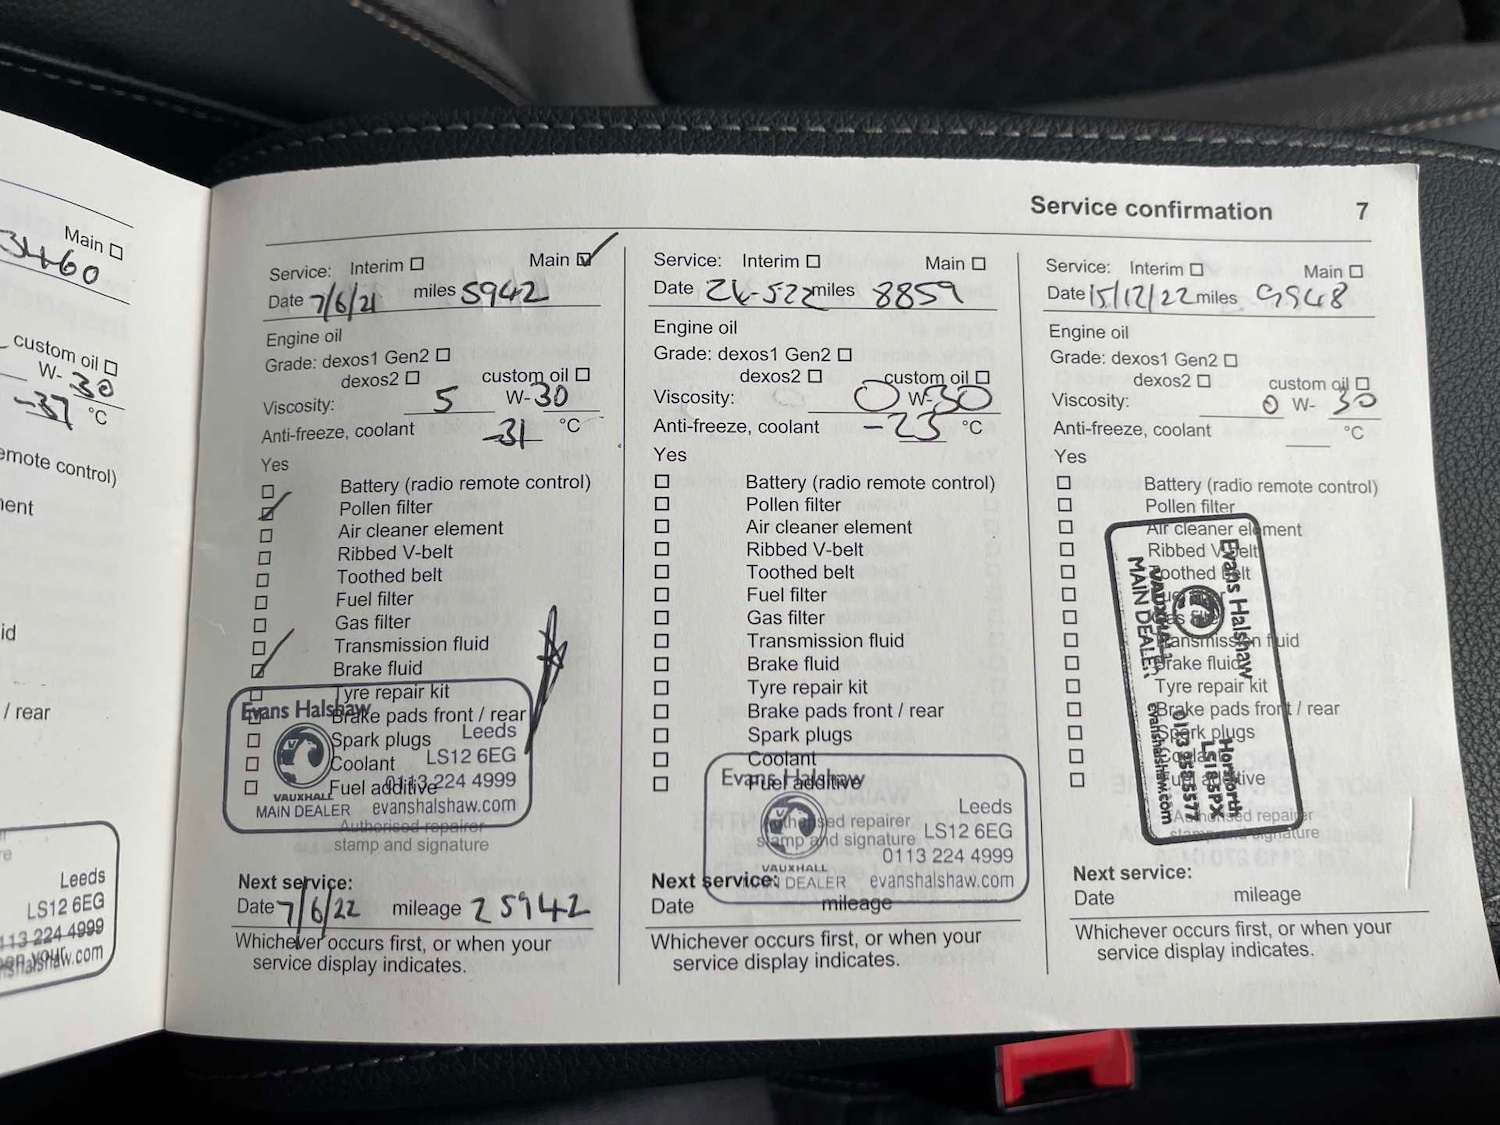 Main ☐
3460
custom oil ☐
W- 30
-37 °C
emote control)
nent
id
/ rear
Leeds
LS12 6EG
113 224 4999
Service confirmation 7
Service: Interim ☐ Main ☑
Date 7/6/21 miles 5942
Engine oil
Grade: dexos1 Gen2 ☐
dexos2 ☐ custom oil ☐
Viscosity: 5 W-30
Anti-freeze, coolant -31 °C
Yes
☐ Battery (radio remote control)
☑ Pollen filter
☐ Air cleaner element
☐ Ribbed V-belt
☐ Toothed belt
☐ Fuel filter
☐ Gas filter
☐ Transmission fluid
☑ Brake fluid
☐ Tyre repair kit
☐ Brake pads front / rear
☐ Spark plugs
☐ Coolant
☐ Fuel additive
Evans Halshaw
Leeds
LS12 6EG
0113 224 4999
VAUXHALL
MAIN DEALER evanshalshaw.com
Authorised repairer
stamp and signature
Next service:
Date 7/6/22 mileage 25942
Whichever occurs first, or when your
service display indicates.
Service: Interim ☐ Main ☐
Date miles 8859
Engine oil
Grade: dexos1 Gen2 ☐
dexos2 ☐ custom oil ☐
Viscosity: 0 W-30
Anti-freeze, coolant -23 °C
Yes
☐ Battery (radio remote control)
☐ Pollen filter
☐ Air cleaner element
☐ Ribbed V-belt
☐ Toothed belt
☐ Fuel filter
☐ Gas filter
☐ Transmission fluid
☐ Brake fluid
☐ Tyre repair kit
☐ Brake pads front / rear
☐ Spark plugs
☐ Coolant
☐ Fuel additive
Evans Halshaw
Authorised repairer
stamp and signature
Leeds
LS12 6EG
0113 224 4999
VAUXHALL
MAIN DEALER evanshalshaw.com
Next service:
Date mileage
Whichever occurs first, or when your
service display indicates.
Service: Interim ☐ Main ☐
Date 15/12/22 miles 9948
Engine oil
Grade: dexos1 Gen2 ☐
dexos2 ☐ custom oil ☐
Viscosity: 0 W- 30
Anti-freeze, coolant °C
Yes
☐ Battery (radio remote control)
☐ Pollen filter
☐ Air cleaner element
☐ Ribbed V-belt
☐ Toothed belt
☐ Fuel filter
☐ Gas filter
☐ Transmission fluid
☐ Brake fluid
☐ Tyre repair kit
☐ Brake pads front / rear
☐ Spark plugs
☐ Coolant
☐ Fuel additive
Evans Halshaw
VAUXHALL
MAIN DEALER
Horsforth
LS18 5PX
0113 2585577
evanshalshaw.com
Authorised repairer
stamp and signature
Next service:
Date mileage
Whichever occurs first, or when your
service display indicates.